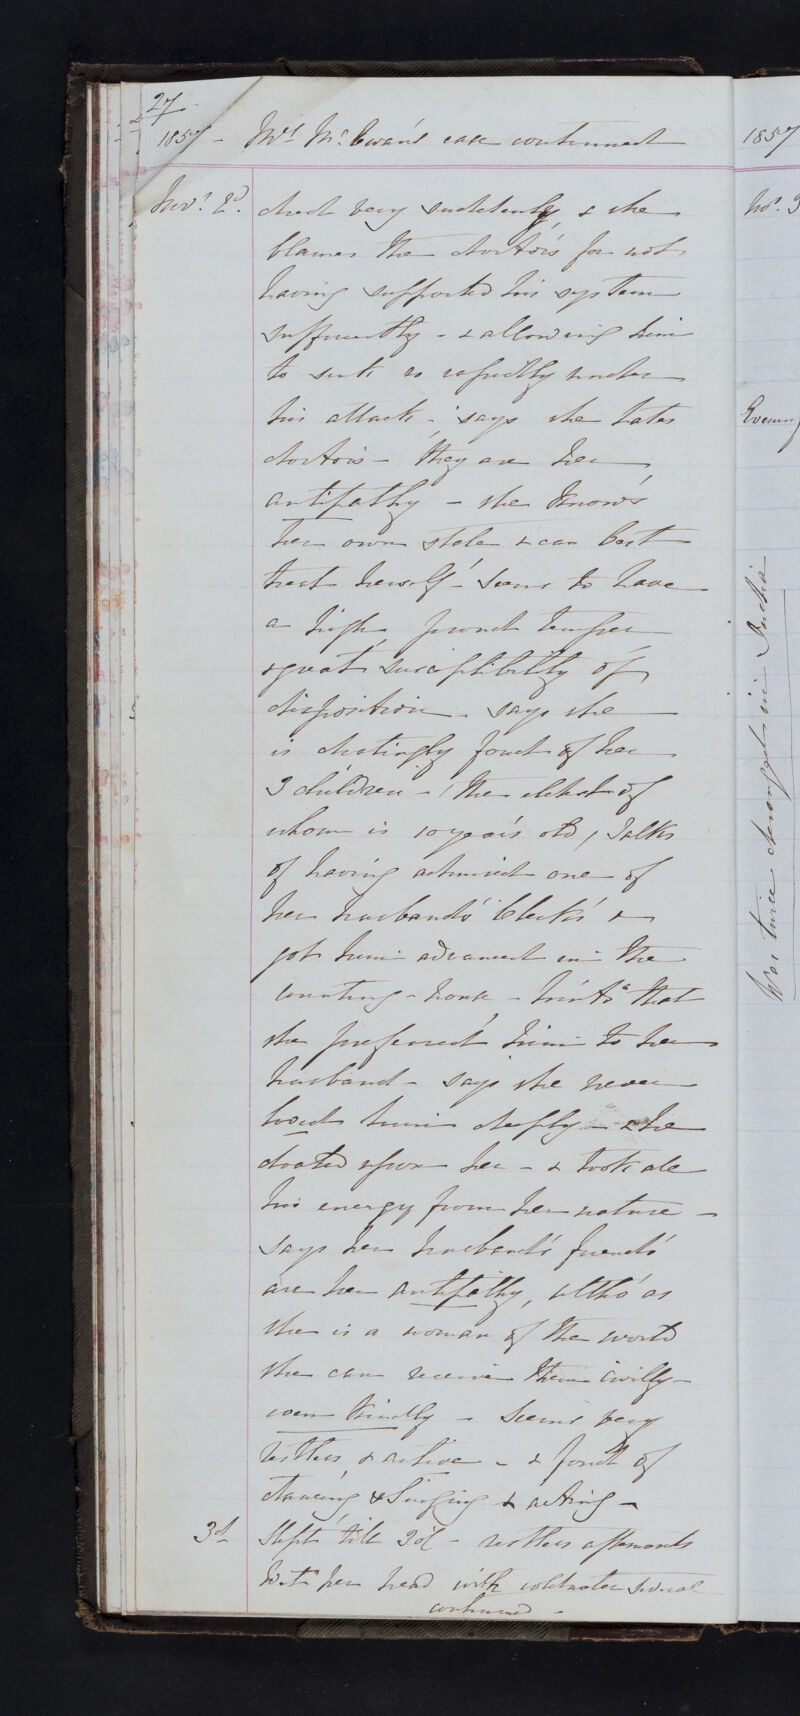 27
1857 - Mrs McEwan's case continued
Novr 2d. died very suddenly, & she
blames the doctors for not
having supported his system
sufficiently - & allowing him
to sink so rapidly under
his attack - says she hates
doctors - they are her
antipathy - she knows
her own state & can best
treat herself - seems to have
a high proud temper
& great susceptibility of
disposition - says she
is dotingly fond of her
3 children - the eldest of
whom is 10 years old, Talks
of having admired one of
her husband's Clerks &
got him advanced in the
counting-house - hints that
she preferred him to her
husband - says she never
loved him deeply - & he
doated upon her - & took all
his energy from her nature -
says her husband's friends
are her antipathy, altho' as
she is a woman of the world
she can receive them civilly -
even kindly - seems very
restless & active - & fond of
dancing & singing & acting -
3d slept till 3 - restless afterwards
her head with cold water several
continued -
1857
No. 3
Evening
Was twice deranged in India